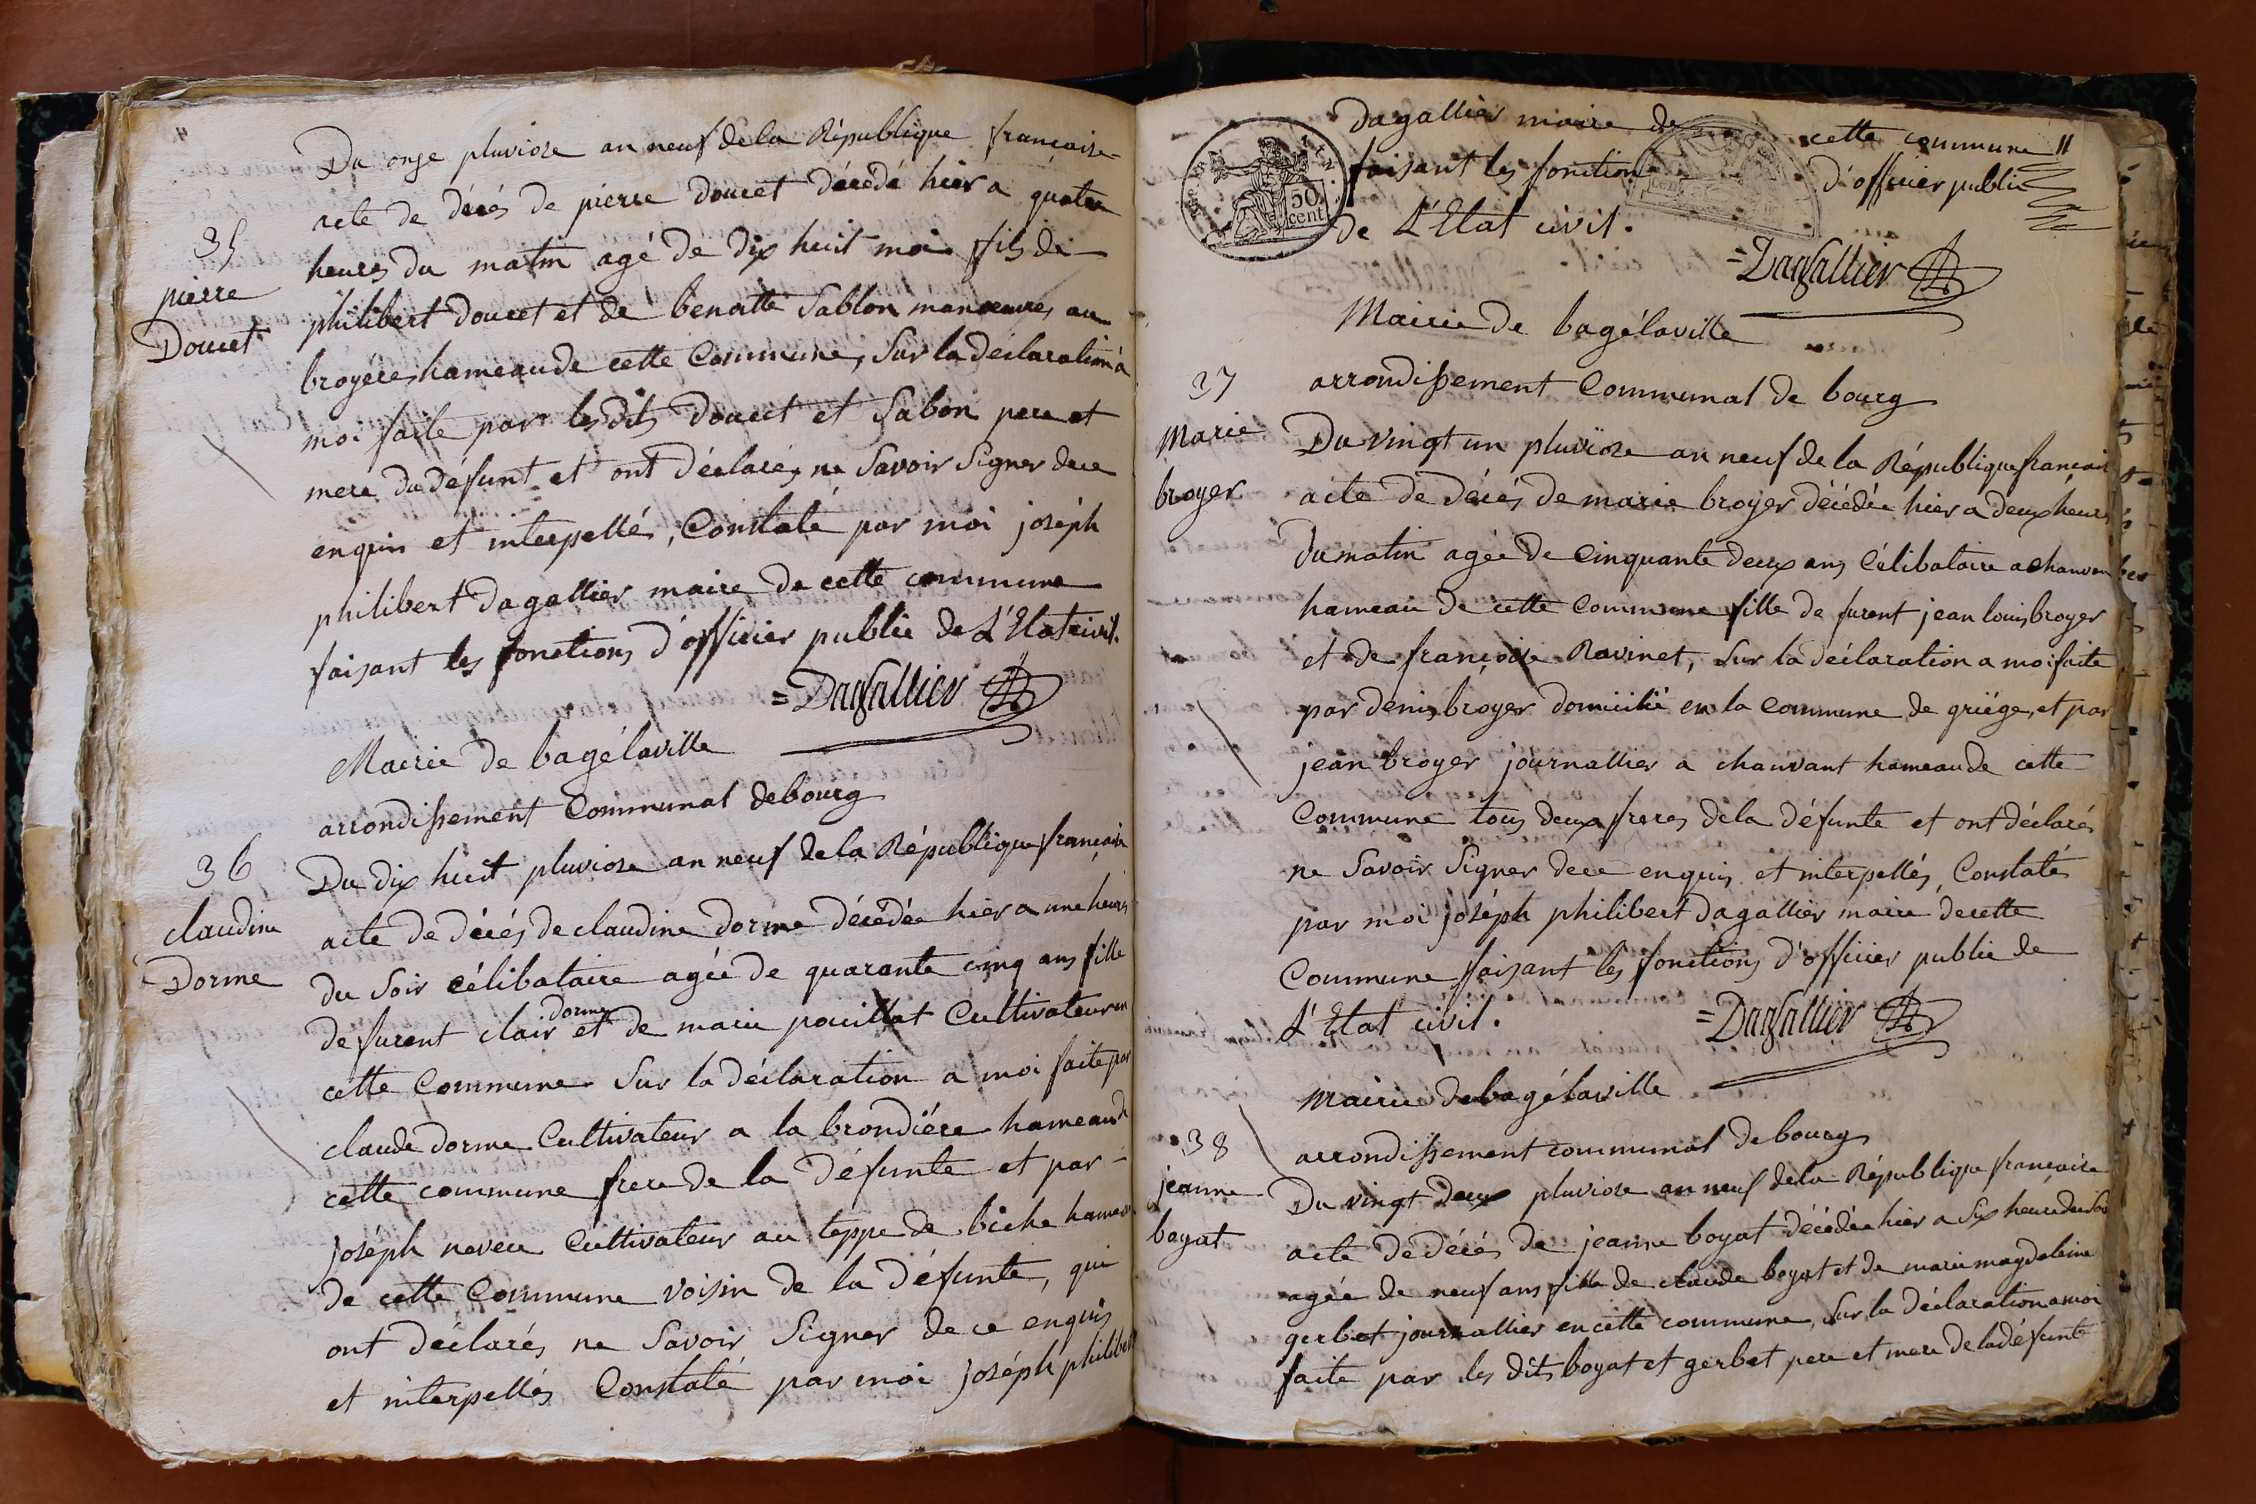 Du onze pluviose an neuf de la République françoise
acte de décés de pierre doucet décédé hier a quatre
35
heures du matin agé de dix huit mois fils de
pierre
Doucet
philibert doucet et de benoitte Sablon manoeuvres au
broyéres hameau de cette Commune, Sur la déclaration à
moi faite par les dits doucet et Sabon pere et
mere du défunt et ont déclarés ne Savoir Signer de ce
enquis et interpellés, Constaté par moi joséph
philibert dagallier maire de cette commune
faisant les fonctions d'officier public de L'Etat civil.
=Dagallier
Mairie de bagélaville
arrondissement Communal de bourg
36
Du dix huit pluviose an neuf de la République françoise
claudine
Dorme
acte de décés de claudine dorme décédée hier a une heures
du Soir célibataire agée de quarante cinq ans fille
dorme
de furent clair et de marie pouillat Cultivateur en
cette Commune Sur la déclaration a moi faite par
claude dorme Cultivateur a la brondiére hameau de
cette commune frere de la défunte et par
joséph neveu Cultivateur au teppe de biche hameau
de cette Commune voisin de la défunte, qui
ont déclarés ne Savoir Signer de ce enquis
et interpellés Constaté par moi joséph philibert
dagallier maire de cette commune
faisant les fonctions d'officier public
50 cent
de L'Etat civil.
=Dagallier
Mairie de bagélaville
37
arrondissement Communal de bourg
Marie
broyer
Du vingt un pluviose an neuf de la République françoise
acte de décés de marie broyer décédée hier a deux heures
du matin agée de Cinquante deux ans Célibataire a chauvan
hameau de cette Commune fille de furent jean louis broyer
et de françoise Ravinet, Sur la déclaration a moi faite
par denis broyer domicilié en la Commune de griége, et par
jean broyer journallier a chauvant hameau de cette
Commune tous deux freres de la défunte et ont déclarés
ne Savoir Signer de ce enquis et interpellés, Constatés
par moi joséph philibert dagallier maire de cette
Commune faisant les fonctions d'officier public de
L'Etat civil.
=Dagallier
Mairie de bagélaville
38
arrondissement communal de bourg
jeanne
bogat
Du vingt deux pluviose an neuf de la République françoise
acte de décés de jeanne boyat décédée hier a Six heure du Soir
agée de neuf ans fille de claude boyat et de marie magdeleine
gerbet journallier en cette commune, Sur la déclaration a moi
faite par les dits boyat et gerbet pere et mere de la défunte